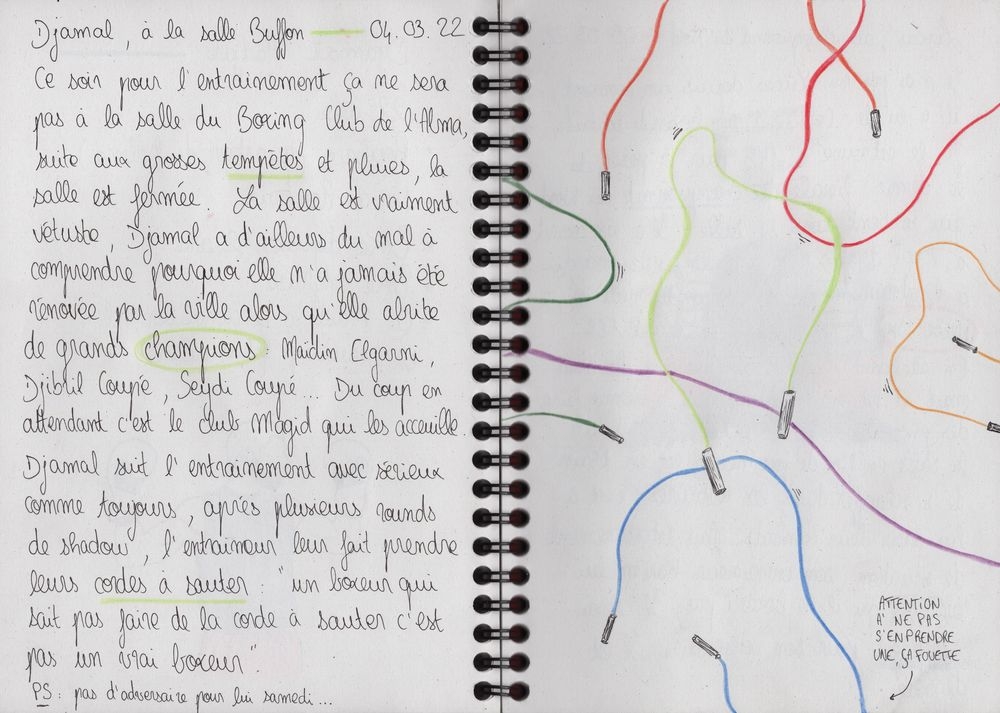 Djamal, à la salle Buffon — 04.03.22
Ce soir pour l'entrainement ça ne sera
pas à la salle du Boxing Club de l'Alma,
suite aux grosses tempêtes et pluies, la
salle est fermée. La salle est vraiment
vetuste, Djamal a d'ailleurs du mal à
comprendre pourquoi elle n'a jamais été
rénovée par la ville alors qu'elle abrite
de grands champions : Maidin Elgarni,
Djibril Coupé, Seydi Coupé... Du coup en
attendant c'est le club Magid qui les acceuille.
Djamal suit l'entrainement avec sérieux
comme toujours, après plusieurs rounds
de shadow, l'entraineur leur fait prendre
leurs cordes à sauter : "un boxeur qui
sait pas faire de la corde à sauter c'est
pas un vrai boxeur".
PS : pas d'adversaire pour lui samedi...
ATTENTION
À NE PAS
S'EN PRENDRE
UNE, ÇA FOUETTE